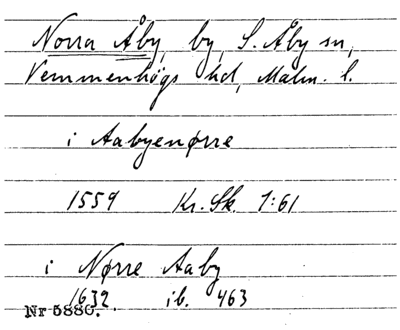 Norra Åby, by, S. Åby sn,
Vemmenhögs hd, Malm. l.
i Aabyenørre
1559 Kr. Sk. 1:61
i Nørre Aaby
1632 ib. 463
Nr 5880.